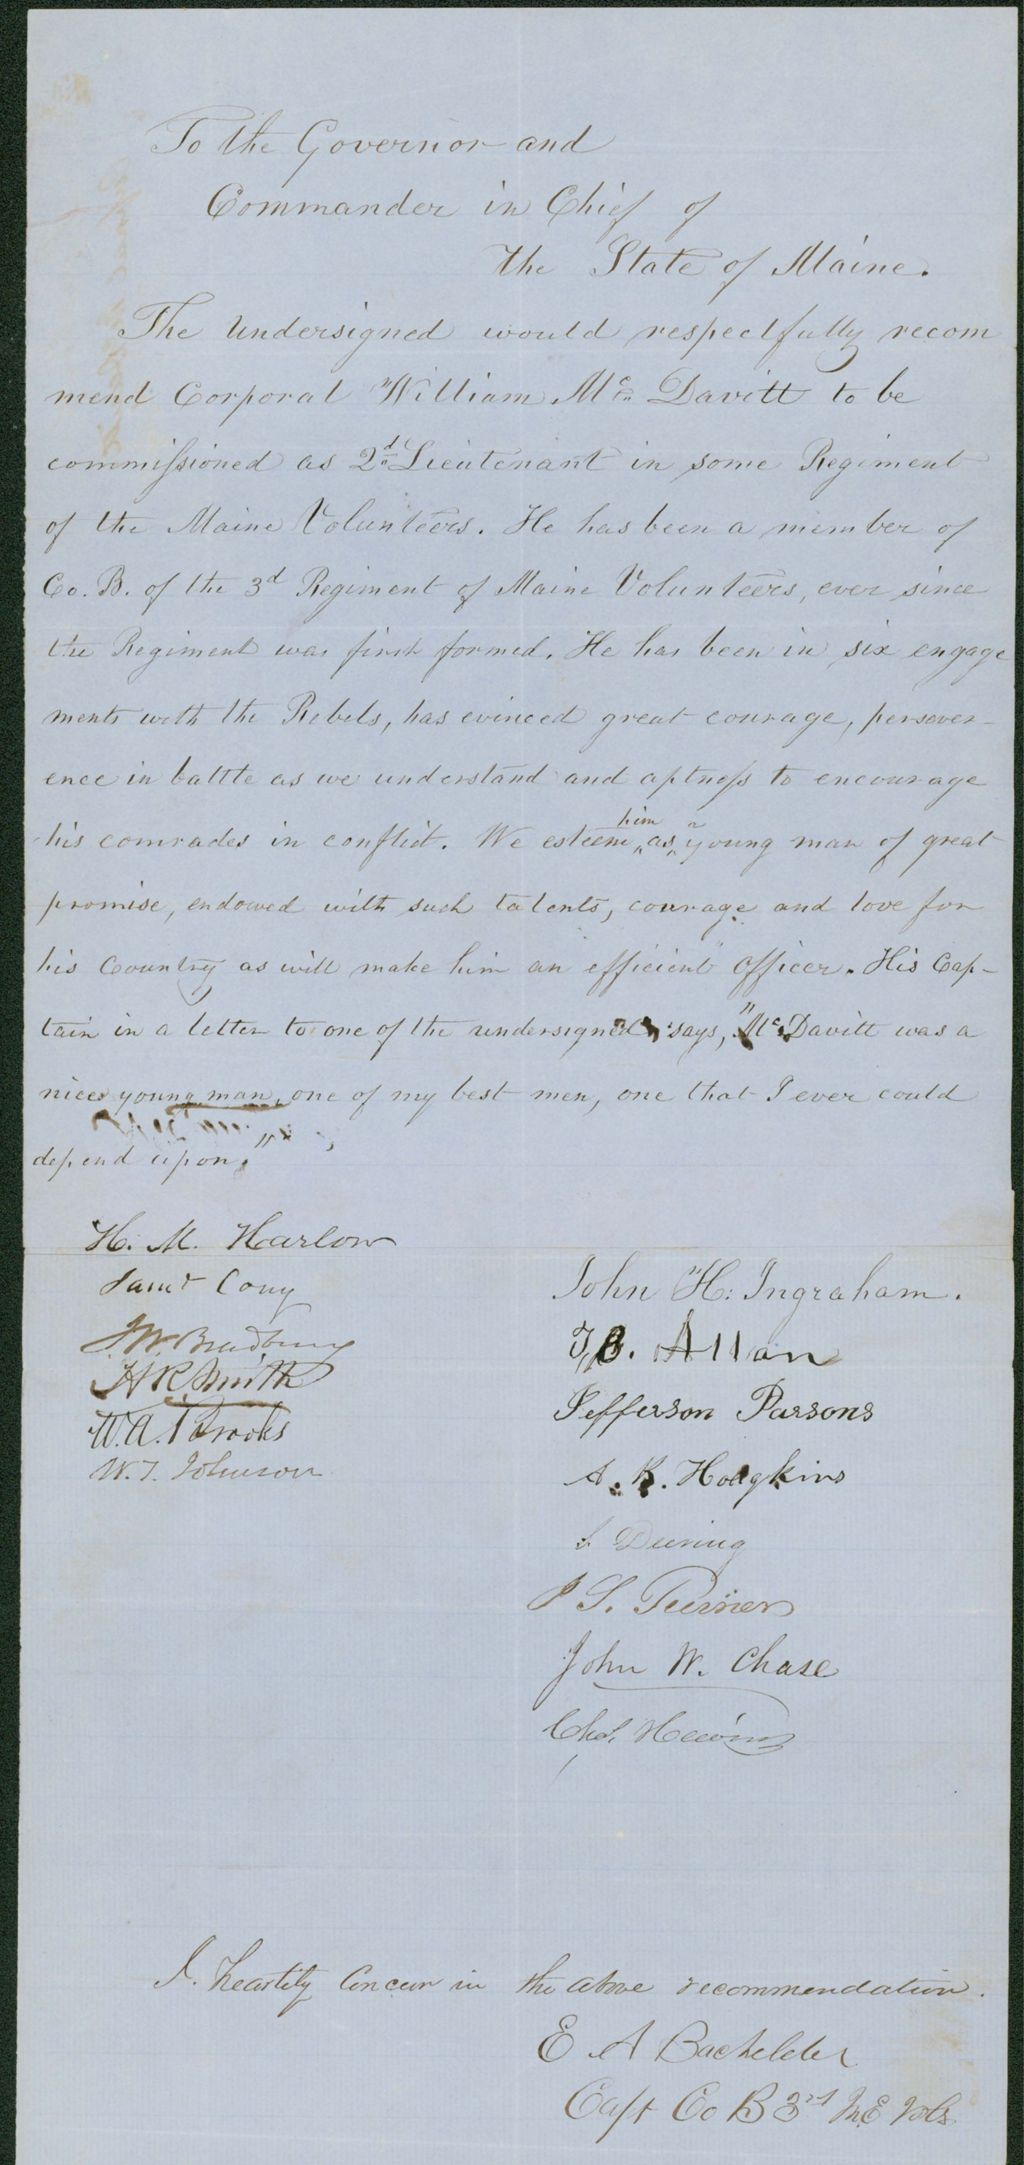 To the Governor and
Commander in Chief of
the State of Maine.
The undersigned would respectfully recom
mend Corporal William Mc Davitt to be
commissioned as 2d Lieutenant in some Regiment
of the Maine Volunteers. He has been a member of
Co. B. of the 3d Regiment of Maine Volunteers, ever since
the Regiment was first formed. He has been in six engage
ments with the Rebels, has evinced great courage, persever-
ence in battle as we understand and aptness to encourage
his comrades in conflict. We esteem him as a young man of great
promise, endowed with such talents, courage and love for
his Country as will make him an efficient officer. His Cap-
tain in a letter to one of the undersigned, says, "Mc Davitt was a
nice young man, one of my best men, one that I ever could
depend upon."
H. M. Harlow
Saml Cony
J W Bradbury
H R Smith
W. A. Brooks
W. T. Johnson
John H. Ingraham.
T, B. Allan
Jefferson Parsons
A. K. Hodgkins
Deering
P S. Turner
John W. Chase
Chas. Hewins
I. heartily Concur in the above recommendation.
E A Bachelder
Capt Co B 3rd M.E Vols